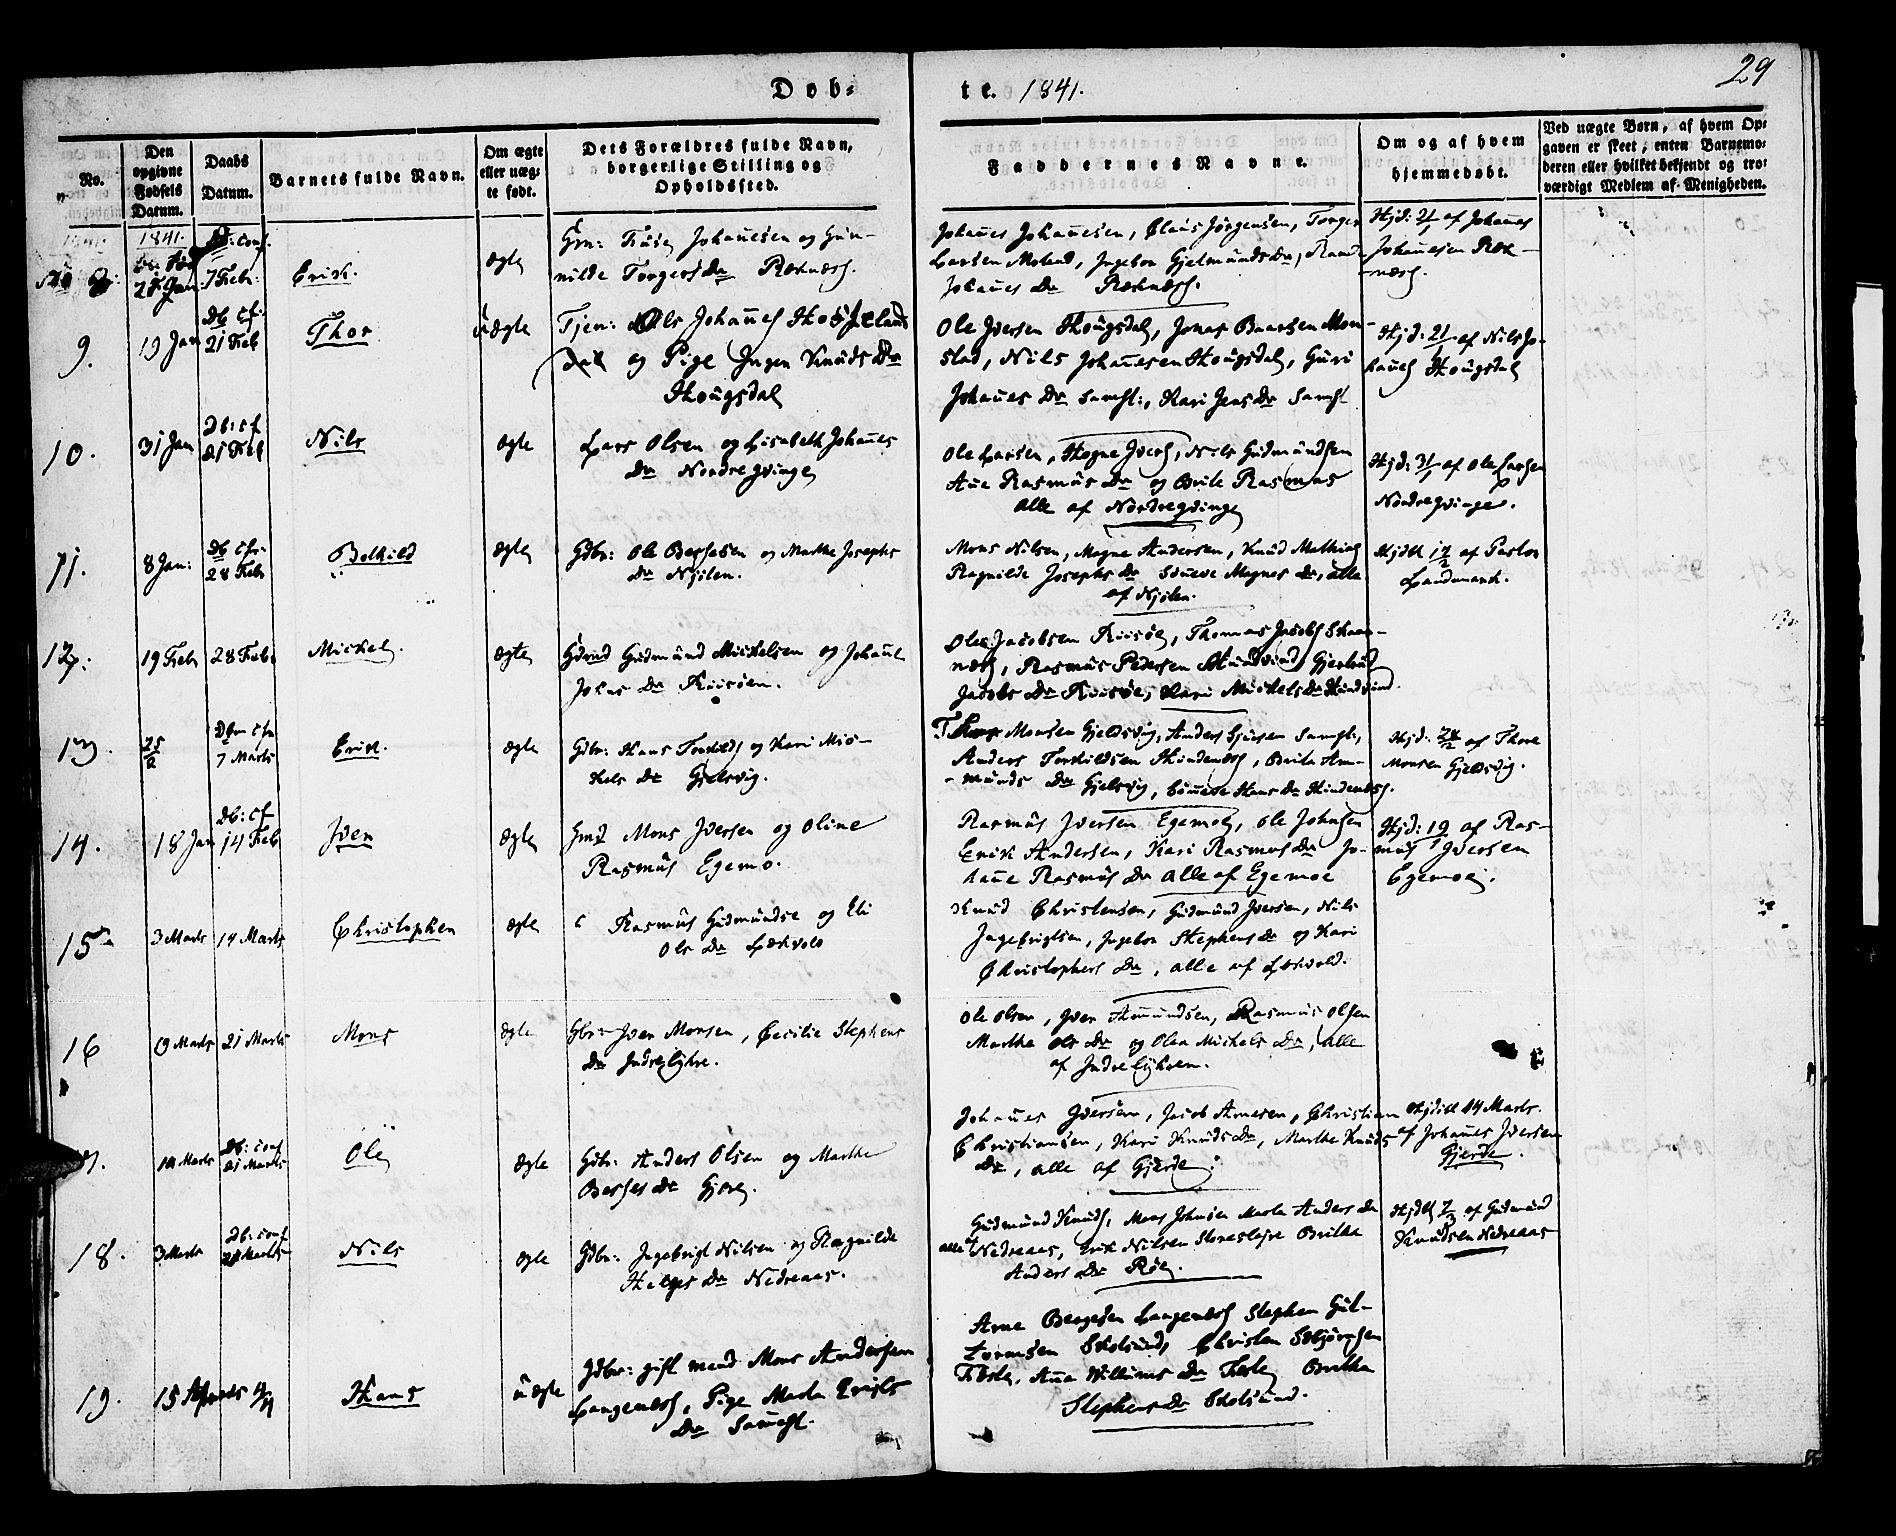 29
Døb-
te. 1841.
No.
Den opgivne Fødsels Datum.
Daabs Datum.
Barnets fulde Navn.
Om ægte eller uægte født.
Dets Forældres fulde Navn,
borgerlige Stilling og
Opholdssted.
Faddernes Navne.
Om og af hvem
hjemmedøbt.
Ved uægte Børn, af hvem Op-
gaven er skeet, enten Barnemo-
deren eller hvilket bekjendt og tro-
værdigt Medlem af Menigheden.
1841.
7 Febr:
Erik.
ægte
Johannesen og Gun-
nilde Torgers Dr
Johannes Johannesen, Claus Jørgensen, Torger
Larsen Molend, Ingebor Gjelmunds Dr, Rand-
Johannes Dr
Hjd: 21/1 af Johannes
Johannesen
9.
19 Jan
Db: cf.
21 Feb
Thor
uægte
Tjen: Nils Johannes
og Pige Ingen Knuds Dr
Hougsdal
Ole Iversen Hougsdal, Jonas Baarsen Mon-
stad, Nils Johannesen Hougsdal, Guri
Johannes Dr Samst:, Kari Jens Dr Samst
Hjd: 21/1 af Nils Jo-
hannes Hougsdal
10.
31 Jan
Db: cf.
21 Feb
Nils
ægte
Lars Olsen og Lisabeth Johannes
Dr Nordregvinge
Ole Larsen, Hogne Ivers, Nils Gudmundsen
Ane Rasmus Dr og Brite Rasmus
alle af Nordregvinge
Hjd: 31/1 af Ole Larsen
Nordregvinge.
11.
8 Jan:
28 Febr
Bothild
ægte
Gdbr: Ole Børgesen og Marthe Josephs
Dr Njøten.
Mons Nilsen, Magne Andersen, Knud Mathias
Ragnilde Josephs Dr Magnes Dr, alle
af Njøten.
Hjdbt 17/2 af Pastor
Landmark.
12.
19 Febr
28 Feb:
Mickel.
ægte
Gudmund Mickelsen og Johanne
Johns Dr Riisøen.
Ole Jacobsen Riisøe, Thomas Jacobs Skaan-
næs, Rasmus Pedersen Hundvind, Gjertrud
Jacobs Dr Riisøe, Kari Mickels Dr Hundvind.
13.
25/2
7 Marts
Erik.
ægte
Gdbr: Hans Torkilds og Kari Mic-
kels Dr Gjelsvig.
Thore Monsen Gjeldsvig, Anders Samst:,
Anders Torkildsen Hindenæs, Brite Am-
-munds Dr Gjelsvig, Hans Dr Hindenæs.
Hjd: 28/2 af Thore
Monsen Gjeldsvig.
14.
18 Jan
Db: cf
14 Feb
Iver
ægte
Gmd Mons Iversen og Oline
Rasmus Egemo.
Rasmus Iversen Egemoe, Ole Johnsen
Erik Andersen, Kari Rasmus Dr Jo-
hanne Rasmus Dr alle af Egemoe
Hjd: 19/1 af Ras-
mus Iversen
Egemoe.
15
3 Marts
14 Marts
Christophen
ægte
Rasmus Gudmundse og Eli
Ols Dr Lækvold
Knud Christensen, Gudmund Iversen, Nils
Ingebrigtsen, Ingebor Stephens Dr og Kari
Christophers Dr, alle af Lækvold.
16
21 Marts
Mons
ægte
Gbr: Iver Monsen, Cecilie Stephens
Dr Indre
Ole Olsen, Iver Amundsen, Rasmus Olsen
Marthe Ols Dr og Olea Mickels Dr, alle
af Indre
14 Marts
Db: conf
21 Marts
Ole
ægte
Gdbr: Anders Olsen og Marthe
Børges Dr Gjere.
Johannes Iversen, Jacob Arnesen, Christian
Christiansen, Kari Knuds Dr, Marthe Knuds
Dr, alle af Gjerde.
Hjdøbt 14 Marts.
af Johannes Iversen
Gjerde.
18.
3 Marts
Db: conf
Nils
ægte
Gdbr: Ingebrigt Nilsen og Ragnilde
Helges Dr Nedreaas.
Gudmund Knuds, Mons Johnsen Marta Anders Dr
alle af Nedreaas, Erik Nilsen Brithe
Anders Dr Røe.
Hjdbt 7/3 af Gudmund
Knudsen Nedreaas
19.
Hans
uægte
Gdbr: gift mand Mons Andersen
Langenæs, Pige Marta
Dr Samst.
Arne Børgesen Langenæs Stephen Gul-
Skolsund, Christen
Anne Willums Dr Brithe
Stephens Dr Skolsund.